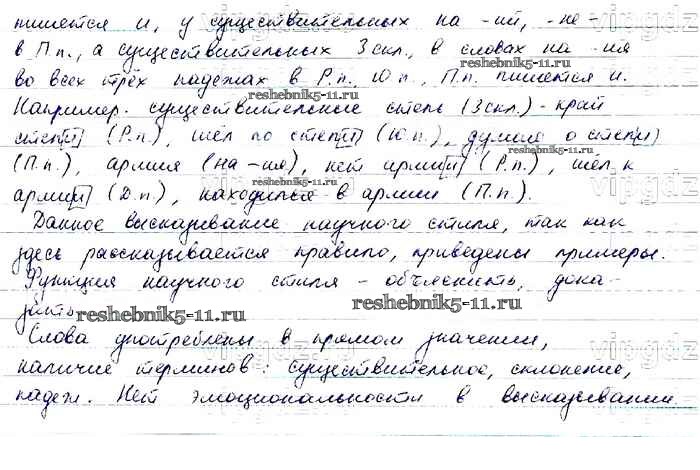 пишется и, у существительных на -ий, -не-
в П.п., а существительных 3скл., в словах на -ия
во всех трёх падежах в Р.п., Ю.п., П.п. пишется и.
Например: существительные степь (3скл.) - край
степ[и] (Р.п.), шёл по степ[и] (Ю.п.), думаю о степ[и]
(П.п.), армия (на -ия), нет арми[и] (Р.п.), шёл к
арми[и] (Д.п.), находился в армии (П.п.).
Данное высказывание научного стиля, так как
здесь рассказывается правило, приведены примеры.
Функция научного стиля - объяснить, дока-
зать.
Слова употреблены в прямом значении,
наличие терминов: существительное, склонение,
падеж. Нет эмоциональности в высказывании.
reshebnik5-11.ru
reshebnik5-11.ru
reshebnik5-11.ru
reshebnik5-11.ru
reshebnik5-11.ru
reshebnik5-11.ru